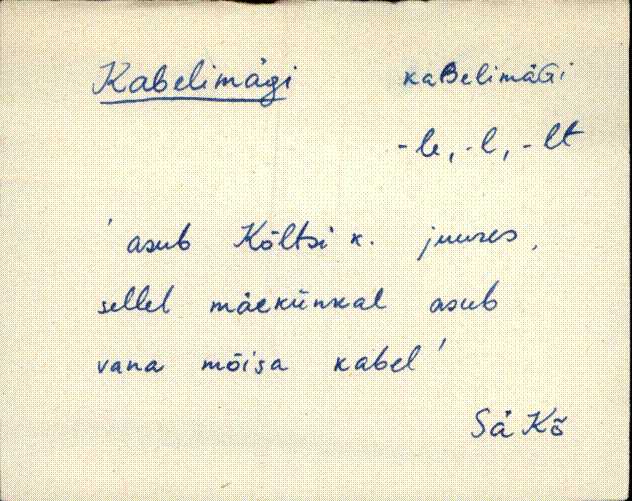 Kabelimägi kaBelimäGi
-le, -l, -lt
' asub Kõltsi k. juures,
sellel mäekünkal asub
vana mõisa kabel '
Sä Kõ